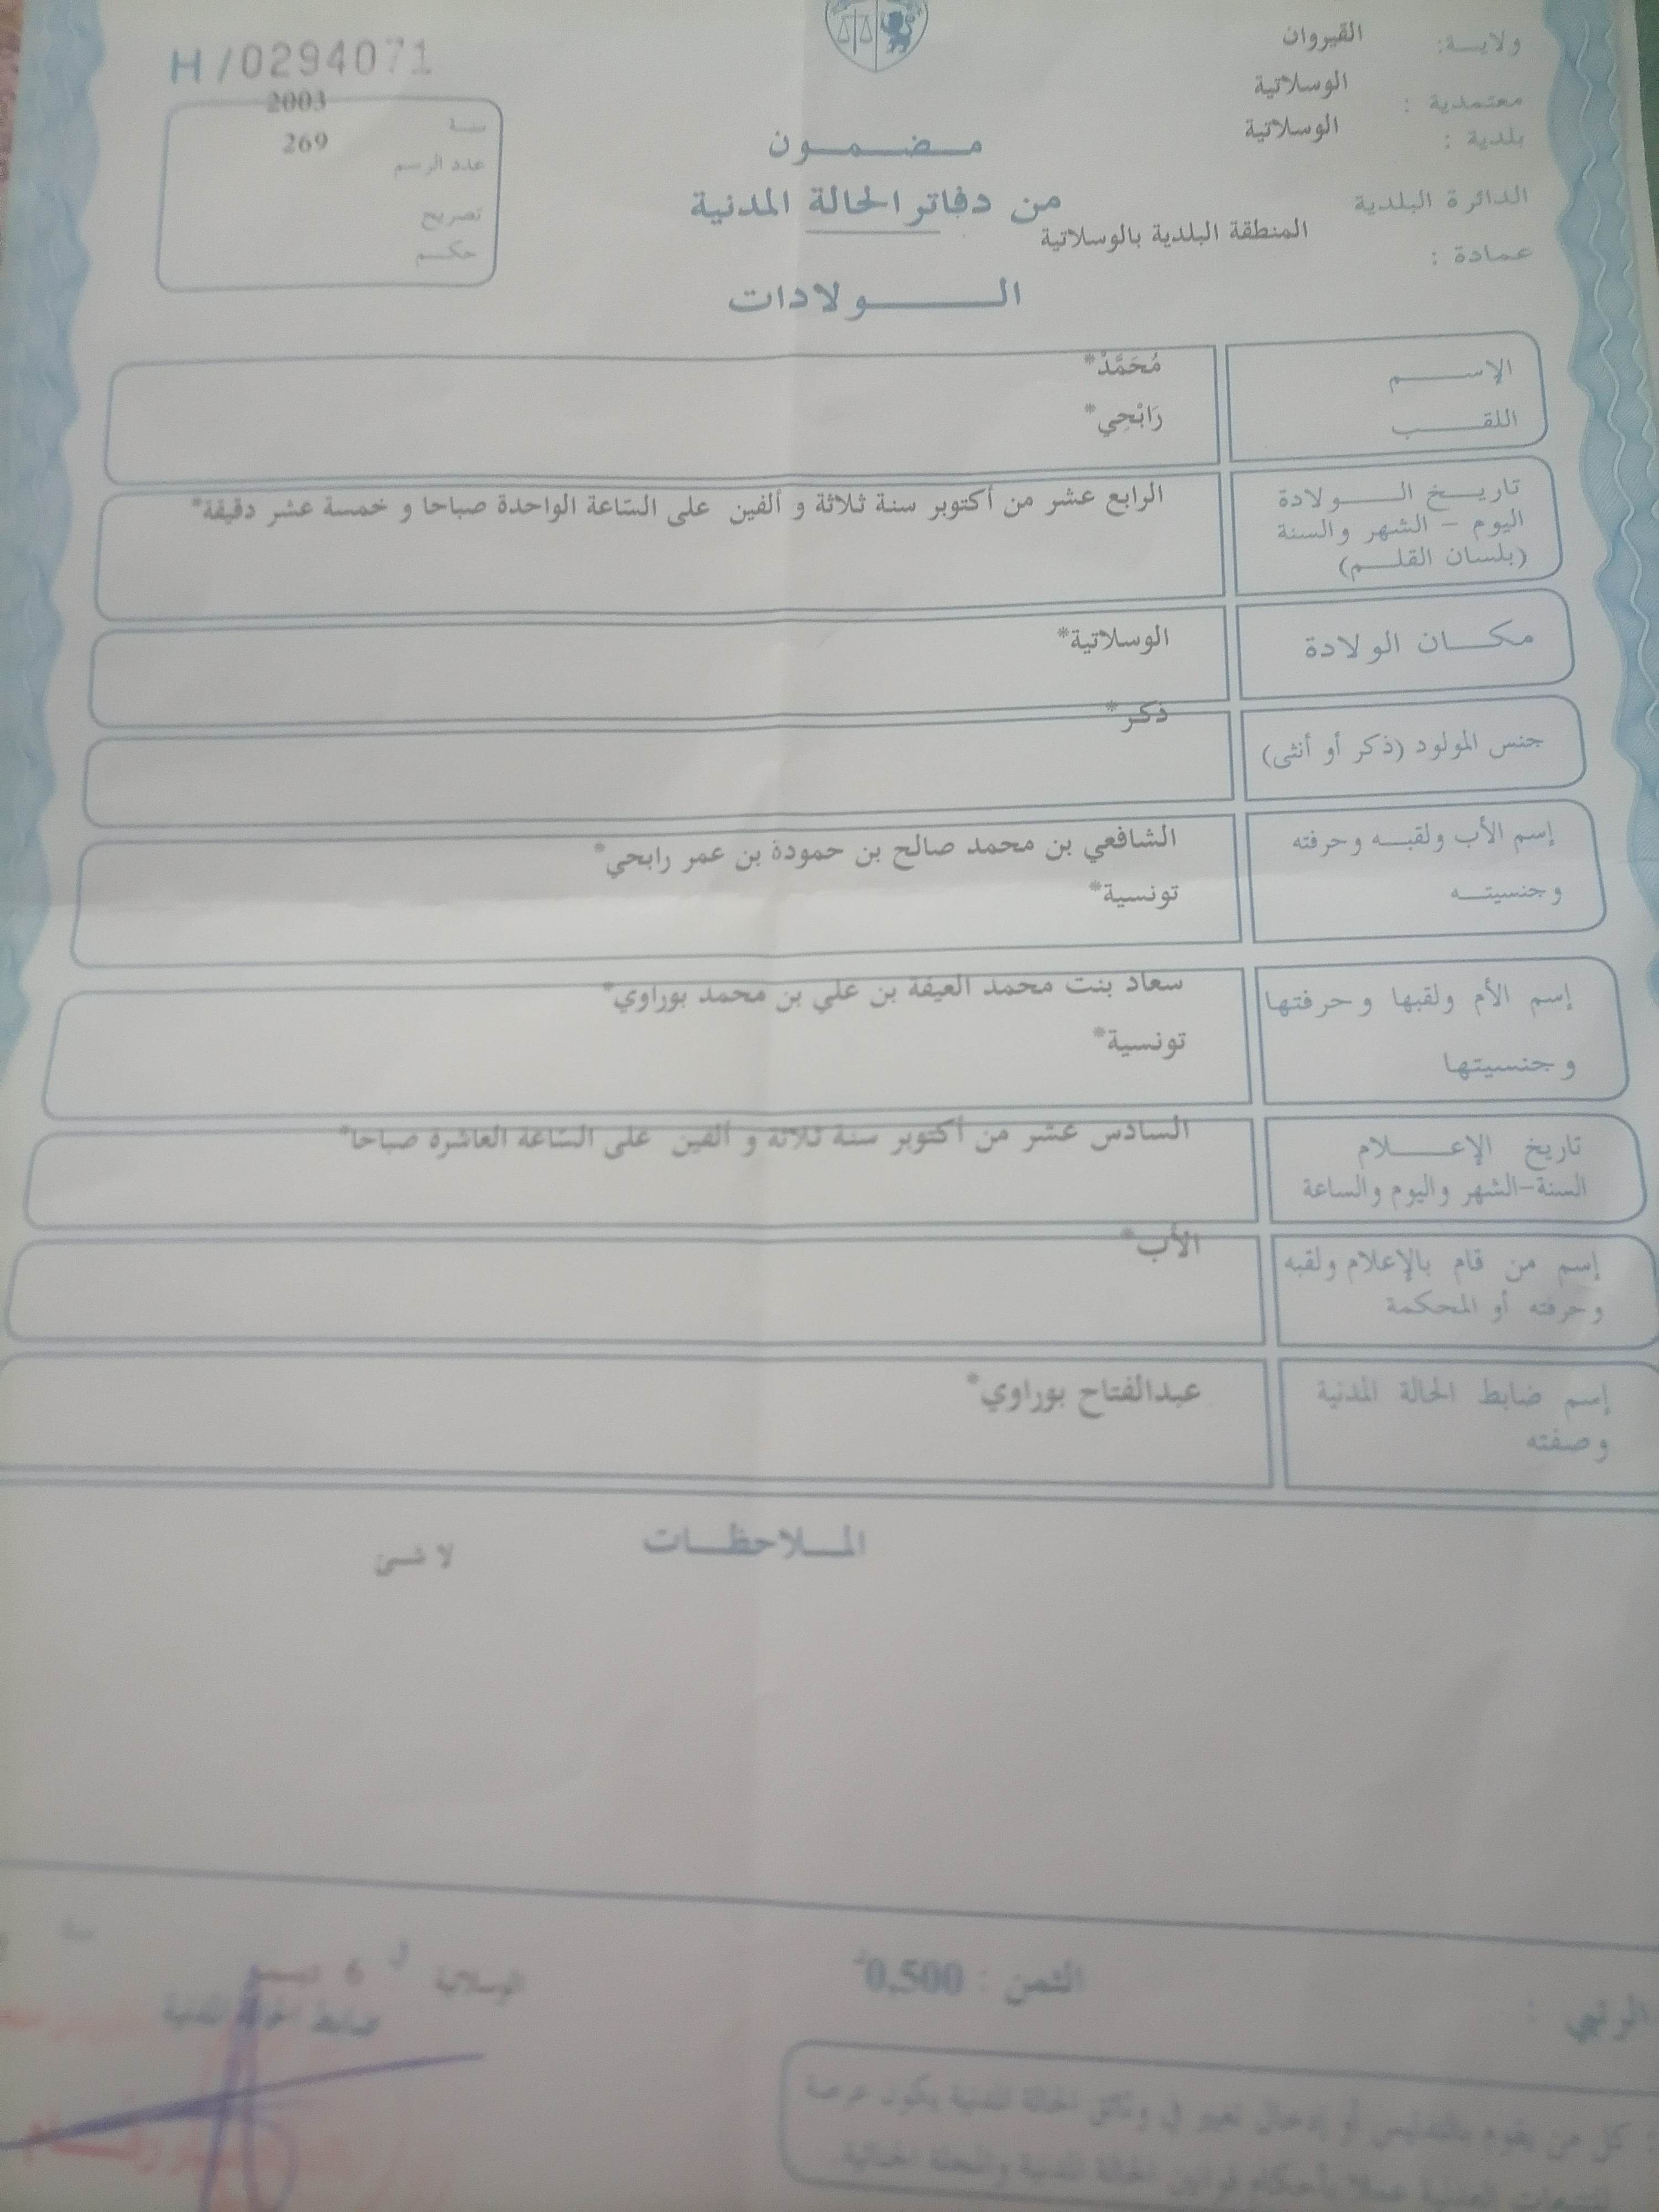 ولاية: القيروان
معتمدية : الوسلاتية
بلدية : الوسلاتية
الدائرة البلدية
المنطقة البلدية بالوسلاتية
عمادة :
H/0294071
سنة 2003
عدد الرسم 269
تصريح
حكم
مضمون
من دفاتر الحالة المدنية
الولادات
الإسم مُحَمَّدْ*
اللقب رَابْحِي*
تاريخ الولادة
اليوم - الشهر والسنة
(بلسان القلم)
الرابع عشر من أكتوبر سنة ثلاثة و ألفين على السّاعة الواحدة صباحا و خمسة عشر دقيقة*
مكان الولادة الوسلاتية*
جنس المولود (ذكر أو أنثى) ذكر*
إسم الأب ولقبه وحرفته الشافعي بن محمد صالح بن حمودة بن عمر رابحي*
وجنسيته تونسية*
إسم الأم ولقبها وحرفتها سعاد بنت محمد العيفة بن علي بن محمد بوراوي*
وجنسيتها تونسية*
تاريخ الإعلام
السنة-الشهر واليوم والساعة
السادس عشر من أكتوبر سنة ثلاثة و ألفين على السّاعة العاشرة صباحا*
إسم من قام بالإعلام ولقبه
وحرفته أو المحكمة
الأب*
إسم ضابط الحالة المدنية
وصفته
عبدالفتاح بوراوي*
الملاحظات
لا شى
الثمن : 0,500د
الوسلاتية في 6
ضابط الحالة المدنية
كل من يقوم بالتدليس أو إدخال تغيير في وثائق الحالة المدنية يكون عرضة